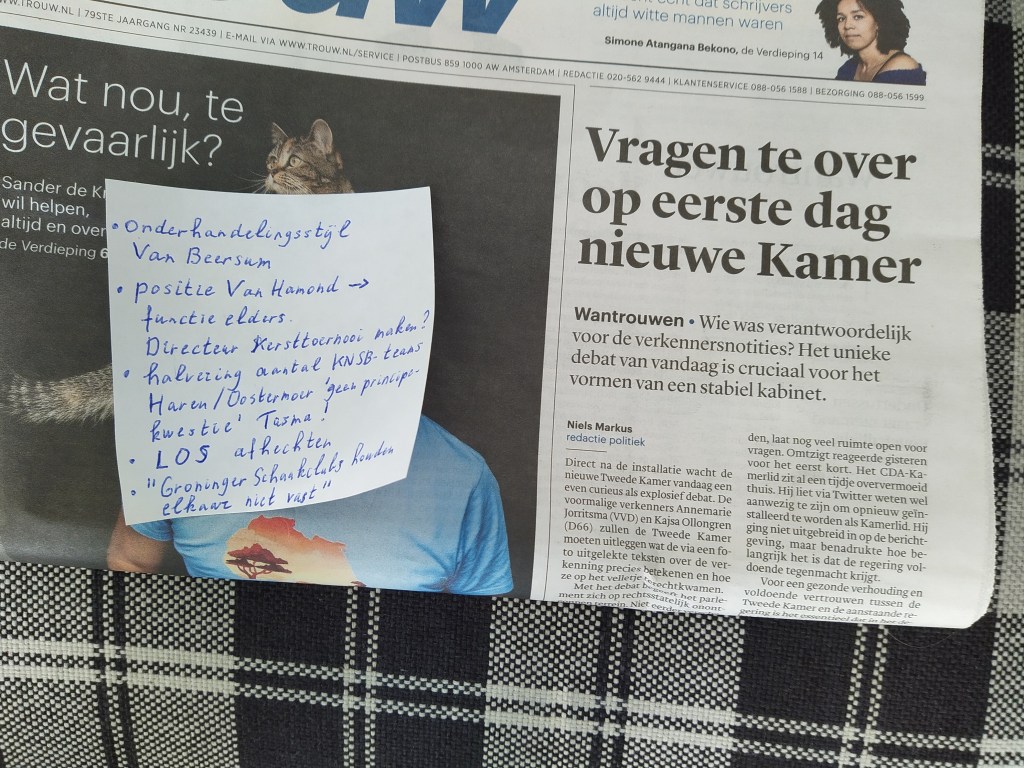 uw
altijd witte mannen waren
Simone Atangana Bekono, de Verdieping 14
WWW.TROUW.NL | 79STE JAARGANG NR 23439 | E-MAIL VIA WWW.TROUW.NL/SERVICE | POSTBUS 859 1000 AW AMSTERDAM | REDACTIE 020-562 9444 | KLANTENSERVICE 088-056 1588 | BEZORGING 088-056 1599
Wat nou, te
gevaarlijk?
Sander de K
wil helpen,
altijd en over
de Verdieping 6
• Onderhandelingsstijl
Van Beersum
• positie Van Hamond →
functie elders.
Directeur Kersttoernooi maken?
• halvering aantal KNSB-teams
Haren/Oostermoer 'geen principe-
kwestie' Tasma!
• LOS afhechten
• "Groninger Schaakclubs houden
elkaar niet vast"
Vragen te over
op eerste dag
nieuwe Kamer
Wantrouwen • Wie was verantwoordelijk
voor de verkennersnotities? Het unieke
debat van vandaag is cruciaal voor het
vormen van een stabiel kabinet.
Niels Markus
redactie politiek
Direct na de installatie wacht de
nieuwe Tweede Kamer vandaag een
even curieus als explosief debat. De
voormalige verkenners Annemarie
Jorritsma (VVD) en Kajsa Ollongren
(D66) zullen de Tweede Kamer
moeten uitleggen wat de via een fo-
to uitgelekte teksten over de ver-
kenning precies betekenen en hoe
ze op het velletje terecht kwamen.
Met het debat begeeft het parle-
ment zich op rechtsstatelijk onont-
den, laat nog veel ruimte open voor
vragen. Omtzigt reageerde gisteren
voor het eerst kort. Het CDA-Ka-
merlid zit al een tijdje oververmoeid
thuis. Hij liet via Twitter weten wel
aanwezig te zijn om opnieuw geïn-
stalleerd te worden als Kamerlid. Hij
ging niet uitgebreid in op de bericht-
geving, maar benadrukte hoe be-
langrijk het is dat de regering vol-
doende tegenmacht krijgt.
Voor een gezonde verhouding en
voldoende vertrouwen tussen de
Tweede Kamer en de aanstaande re-
gering is het essentieel dat in het de-